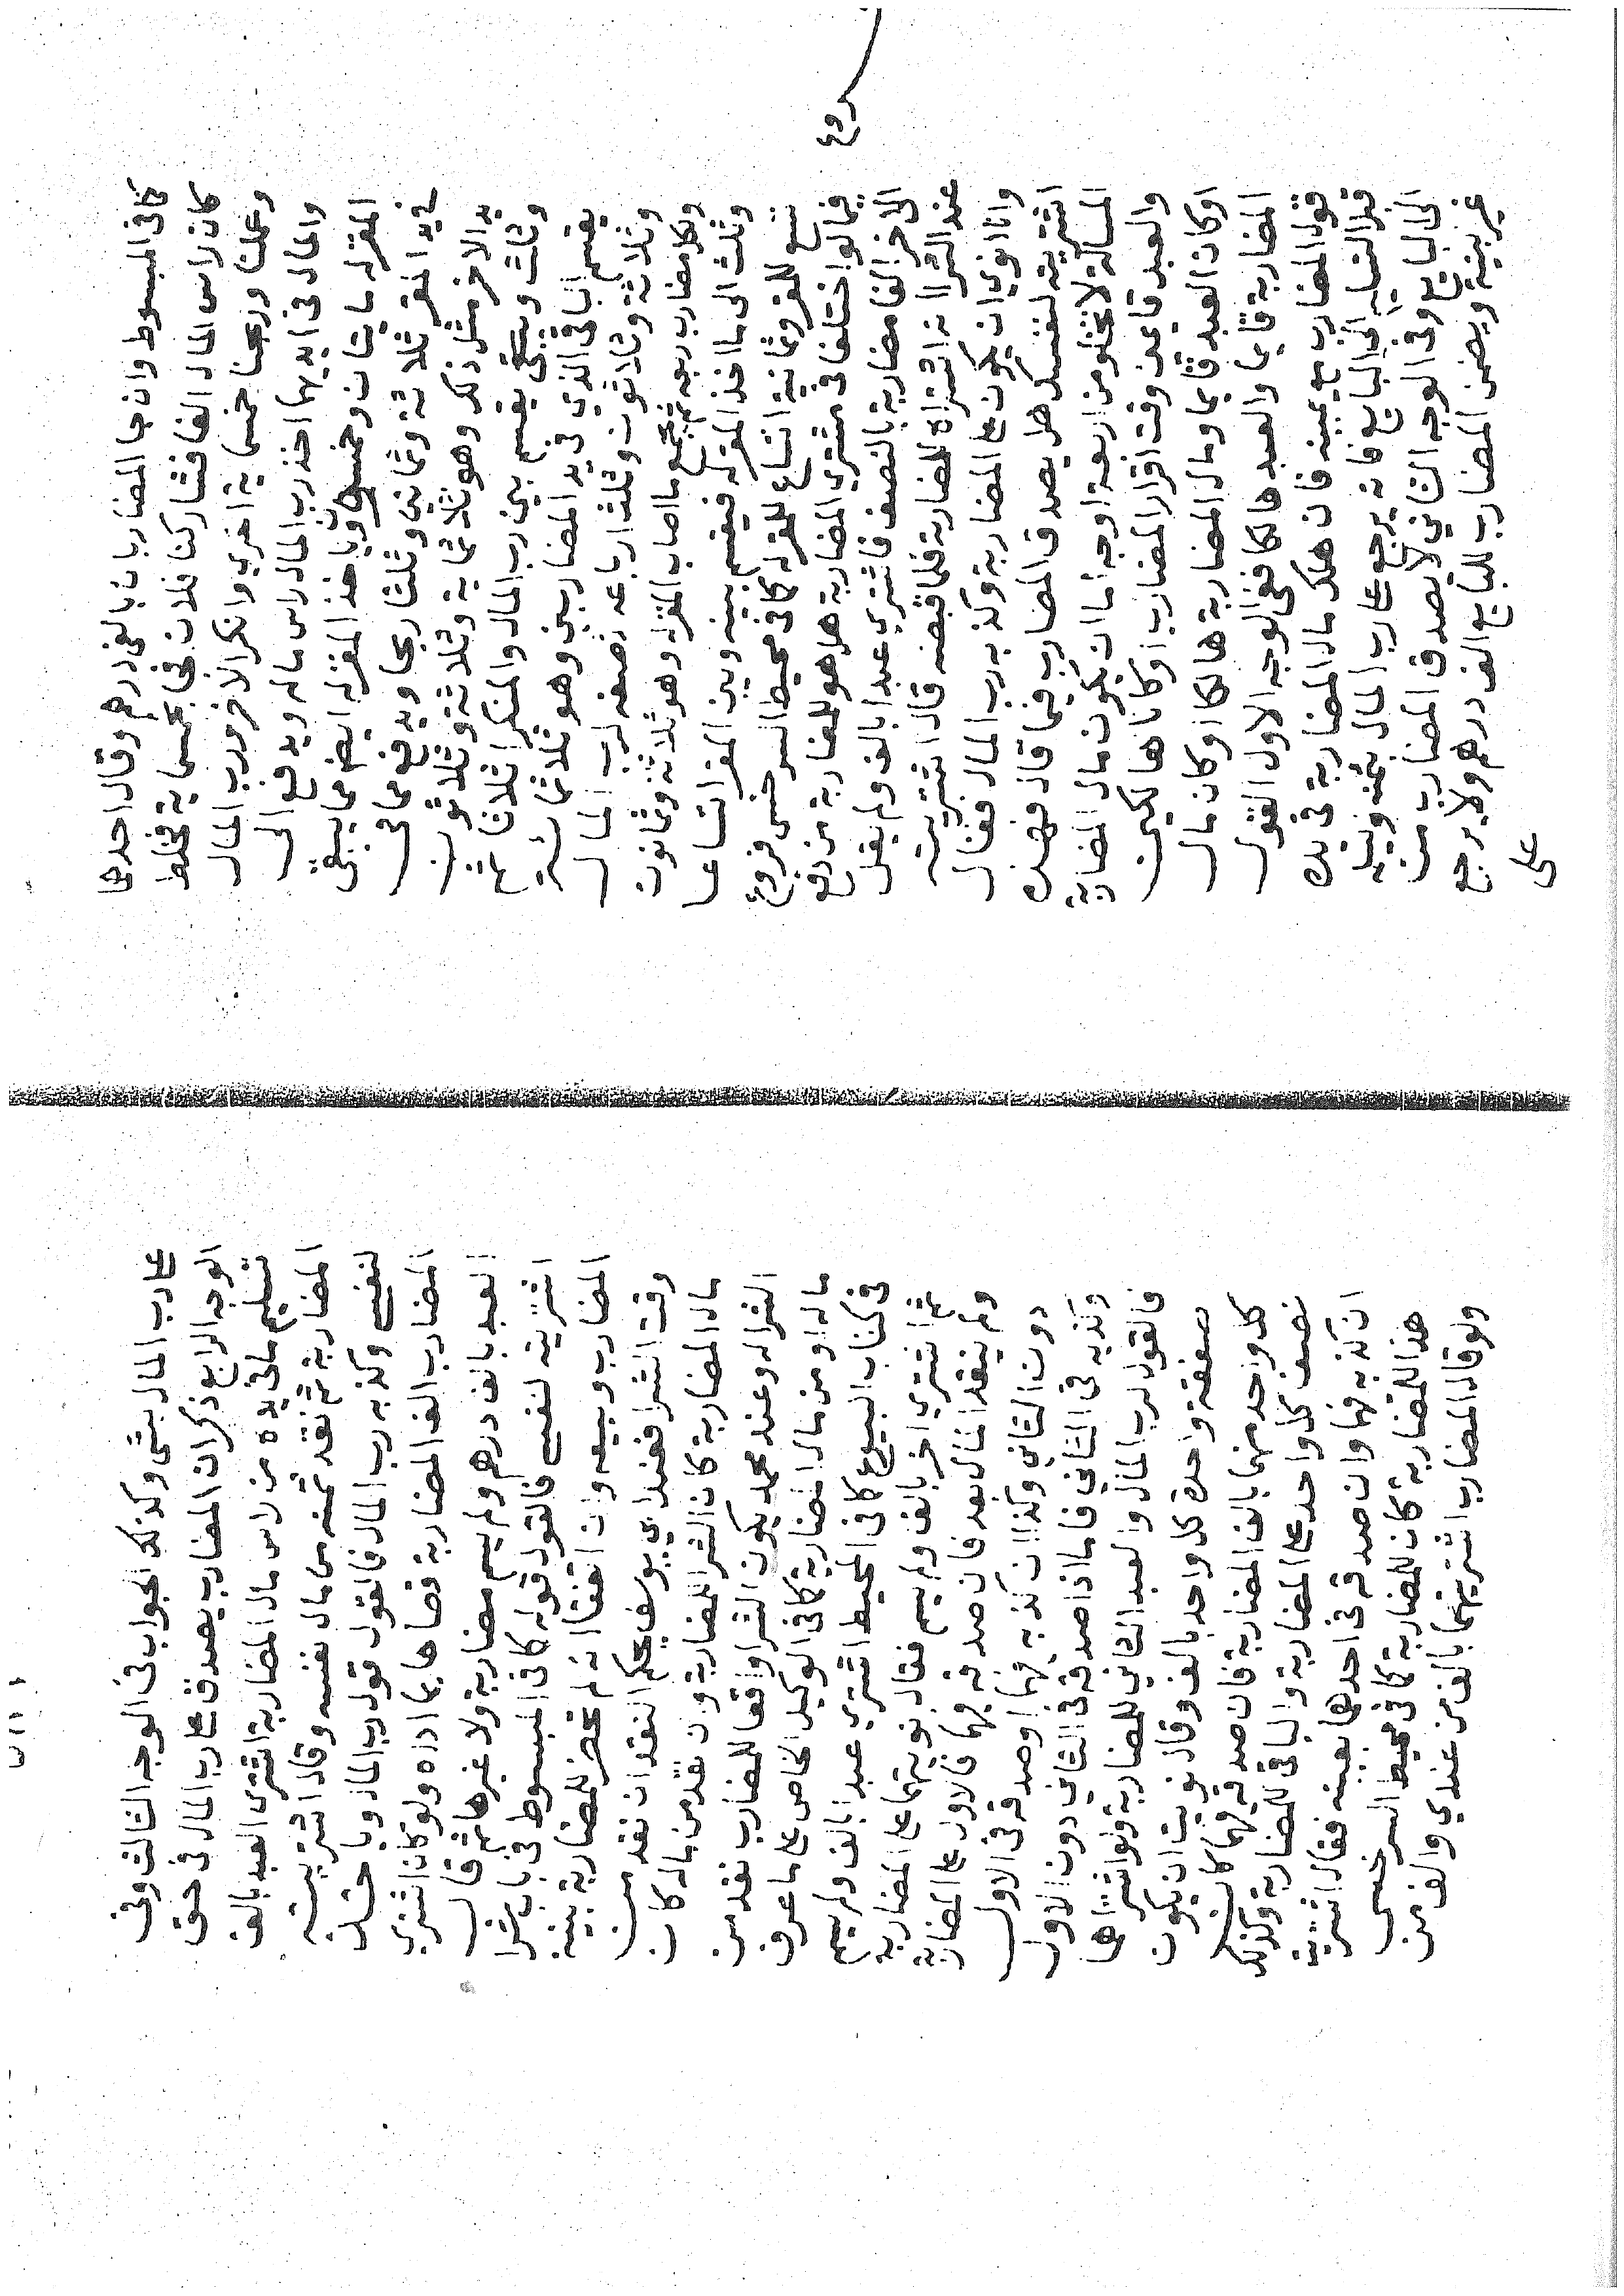 كما فى المبسوط وان جا المضاربان بالفى درهم وقال احدهما
كان راس المال الفا فشاركنا فلان فجا بخمسماية فخلط
وعملنا وربحنا خمسماية اخري وانكر الاخر ورب المال
والمال فى ايديهما اخذ رب المال راس ماله ويدفع الى
المقر له مايتان وخمسون وياخذ المقر له ايضا مما يبقى
فى يد المقر ثلاثة وثمانين وثلثا ربحا ويدفع مما فى
يد الاخر مثل ذلك وهو ثلاثماية وثلاثة وثلاثون
وثلث ويبقى يقسم بين رب المال والمنكر اثلاثا ثم
يقسم الباقى الذي فى يد المضاربين وهو ثلاثمائة
وثلاثة وثلاثون وثلث ارباعه نصفه لرب المال
ولكل مضارب ربعه ثم يجمع ما اصاب المقر وهو ثلاثة وثمانون
وثلث الى ما اخذ المقر له فيقسم بينه وبين المقر اتساعا
تسع للمقر وثمانية اتساع للمقر له كما فى محيط السرخسى فروع
فيما لو اختلفا فى مشتري المضاربة هل هو للمضاربة من دفع
الى اخر الفا مضاربة بالنصف فاشتري عبدا بالف ولم يقل
عند الشرا انه اشتراه للمضاربة فلما قبضه قال اشتريته
وانا انوي ان يكون على المضاربة وكذبه رب المال فقال
اشتريته لنفسك هل يصدق المضارب فيما قال فهذه
المسالة لا تخلو من اربعة اوجه اما ان يكون مال المضاربة
والعبد قايمين وقت اقرار المضارب او كانا هالكين
او كان العبد قايما ومال المضاربة هالكا او كان مال
المضاربة قايما والعبد هالكا ففى الوجه الاول القول
قول المضارب مع يمينه فان هلك مال المضاربة فى يده
قبل التسليم الى البايع فانه يرجع على رب المال بثمنه ويسلمه
الى البايع وفى الوجه الثاني لا يصدق المضارب من
غير بينة ويضمن المضارب للبايع الف درهم ولا يرجع
على
على رب المال بشى وكذلك الجواب فى الوجه الثالث وفى
الوجه الرابع ذكر ان المضارب يصدق على رب المال فى حق
تسليم ما فى يده من راس مال المضاربة اشترى العبد بالف
المضاربة ثم نقد ثمنه من مال نفسه وقال اشتريته
لنفسى وكذبه رب المال فالقول قول رب المال وياخذ
المضارب الف المضاربة قصاصا بما اداه ولو كان اشتري
العبد بالف درهم ولم يسم مضاربة ولا غيرها ثم قال
اشتريته لنفسى فالقول قوله كما فى المبسوط فى باب شرا
المضارب وبيعه وان اتفقا انه لم تحضر للمضاربة بينة
وقت الشرا فعند ابي يوسف يحكم النقد ان نقد من
مال المضاربة كان الشرا للمضاربة وان نقد من ماله كان
الشرا له وعند محمد يكون الشرا واقعا للمضارب نقد من
ماله او من مال المضاربة كما فى الوكيل الخاص على ما عرف
فى كتاب البيوع كما فى المحيط اشتري عبدا بالف ولم يسم
ثم اشتري اخر بالف ولم يسم فقال نويتهما على المضاربة
ولم ينقد المال بعد فان صدقه فيهما فالاول على المضاربة
دون الثاني وكذا ان كذبه فيهما او صدقه فى الاول
وكذبه فى الثاني فاما اذا صدقه فى الثاني دون الاول
فالقول لرب المال والعبد الثاني للمضاربة ولو اشتراهما
صفقة واحدة كل واحد بالف وقال نويت ان يكون
كل واحد منهما بالف المضاربة فان صدقه فيهما كان
نصف كل واحد على المضاربة والباقى للمضارب وكذلك
ان كذبه فيهما وان صدقه فى احدهما بعينه فقال اشتريت
هذا للمضاربة كان للمضاربة كما فى محيط السرخسى
ولو قال المضارب اشتريتهما بالف من عندي والف من